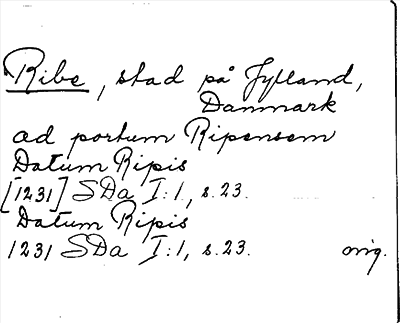 Ribe, stad på Jylland,
Danmark
ad portum Ripensem
Datum Ripis
[1231] SDa I:1, s.23.
Datum Ripis
1231 SDa I:1, s.23. orig.